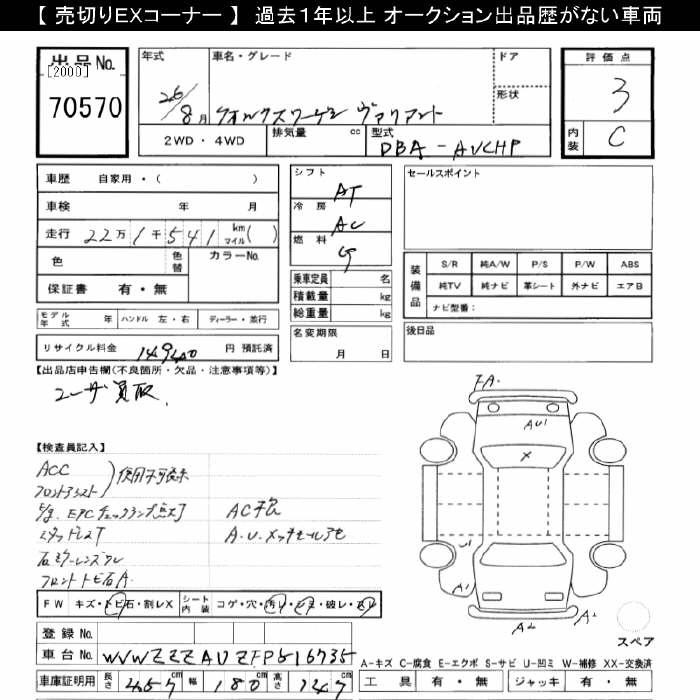 【 売切りEXコーナー 】 過去1年以上 オークション出品歴がない車両
出品No.
[2000]
70570
年式
26/8月
車名・グレード
フォルクスワーゲン ヴァリアント
ドア
形状
2WD・4WD
排気量 cc
型式
DBA-AUCHP
評価点
3
内装
C
車歴 自家用・( )
車検 年 月
走行 22万1千541 km マイル( )
色
色替
カラーNo.
保証書 有・無
モデル年式 年
ハンドル 左・右
ディーラー・並行
リサイクル料金 円 預託済
シフト
AT
冷房
AC
燃料
G
乗車定員 名
積載量 kg
総重量 kg
名変期限
月 日
セールスポイント
装備品
S/R 純A/W P/S P/W ABS
純TV 純ナビ 革シート 外ナビ エアB
ナビ型番：
後日品
【出品店申告欄(不良箇所・欠品・注意事項等)】
ユーザ買取
【検査員記入】
ACC
フロントアシスト
使用不可表示
EPCチェックランプ点灯
AC不良
石跡
フロントトビ石A
FW キズ・トビ石・割レX
シート内装
コゲ・穴・汚レ・シミ・破レ・スレ
登録No.
車台No. WVWZZZAUZFP516735
車庫証明用
長さ 457
幅 180
高さ 147
FA.
AU1
X
U1
A1
A1
A2
A2
スペア
A-キズ C-腐食 E-エクボ S-サビ U-凹ミ W-補修 XX-交換済
工具 有・無
ジャッキ 有・無